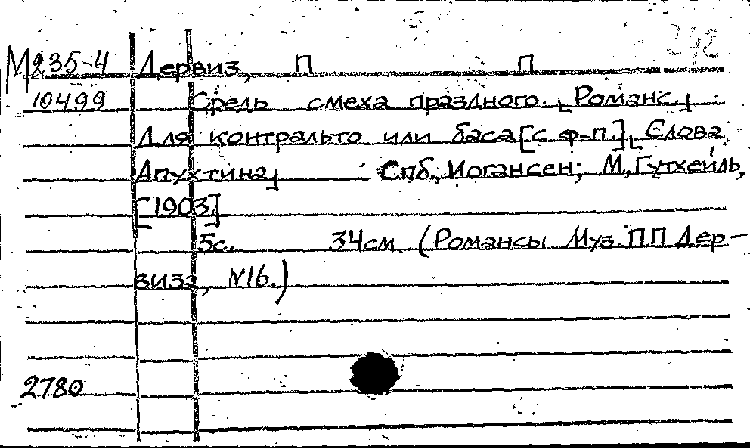 М235-4 Дервиз, П П
10499 Средь смеха праздного. [Романс.]
Для контральто или баса [с ф-п.], [Слова
Апухтина] Спб., Иогансен; М., Гутхейль,
[1903]
5с. 34см (Романсы Муз. П П Дер-
виза, №16.)
2780